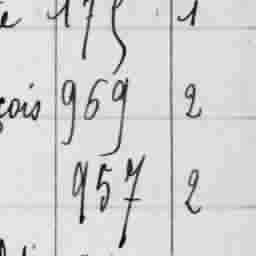 175 1
çois 969 2
957 2